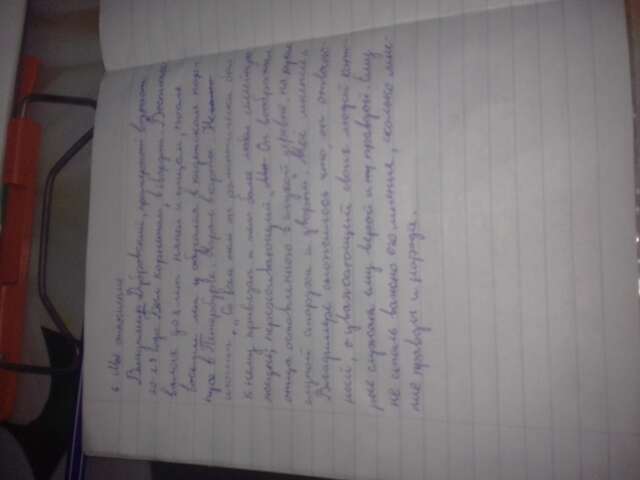 6. Моё отношение
Владимир Дубровский, примерный возраст
20-23 года. Был корнетом, в гвардии. Воспиты-
вался до 8 лет няней и отцом, после
восьми лет обучался в кадетском кор-
пусе в Петербурге. Играл в карты.
"Со всем тем он романтически был
к нему привязан и тем более любил семейную
жизнь; Он воображал
отца оставленного в глухой деревне, на руках
глупой старухи и дворни". Моё мнение о
Владимире сложилось что, он отваж-
ный, уважающий своих людей кото-
рые служат ему верой и правдой. Ему
не столь важно его мнение, сколько мне-
ние правды и народа.